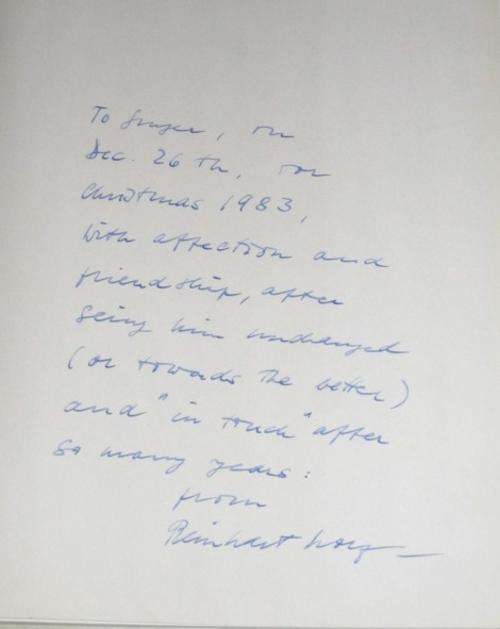 To , on
Dec. 26 th, for
Christmas 1983,
With affection and
friendship, after
seing him unchanged
(or towards the better)
and "in touch" after
so many years:
from
Reinhart